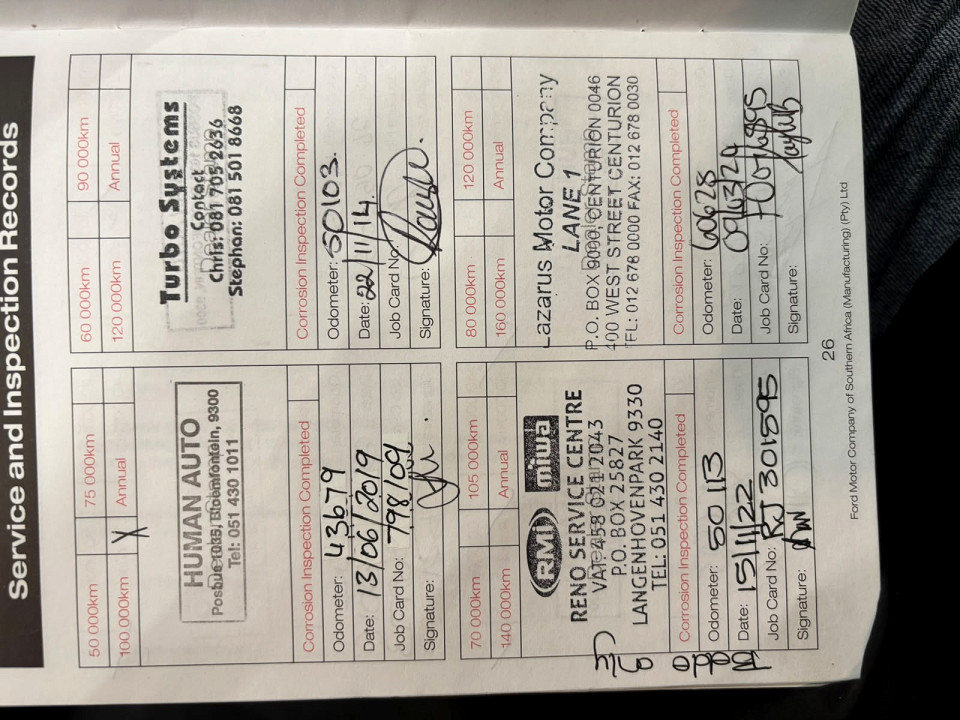 Service and Inspection Records
50 000km
75 000km
100 000km
X
Annual
HUMAN AUTO
Posbus 1035, Bloemfontein, 9300
Tel: 051 430 1011
Corrosion Inspection Completed
Odometer: 43679
Date: 13/06/2019
Job Card No: 798/09
Signature:
60 000km
90 000km
120 000km
Annual
Turbo Systems
Contact
Chris: 081 705 2636
Stephan: 081 501 8668
Corrosion Inspection Completed
Odometer: 50103.
Date: 22/11/14
Job Card No:
Signature:
70 000km
105 000km
140 000km
Annual
RMI
miwa
RENO SERVICE CENTRE
VAT: 458 021 2043
P.O. BOX 25827
LANGENHOVENPARK 9330
TEL: 051 430 2140
Corrosion Inspection Completed
Odometer: 50 113
Date: 15/11/22
Job Card No: RJ 301595
Signature:
80 000km
120 000km
160 000km
Annual
Lazarus Motor Company
LANE 1
P.O. BOX 9000, CENTURION 0046
400 WEST STREET CENTURION
TEL: 012 678 0000 FAX: 012 678 0030
Corrosion Inspection Completed
Odometer: 60628
Date: 09/13/24
Job Card No:
Signature:
26
Ford Motor Company of Southern Africa (Manufacturing) (Pty) Ltd